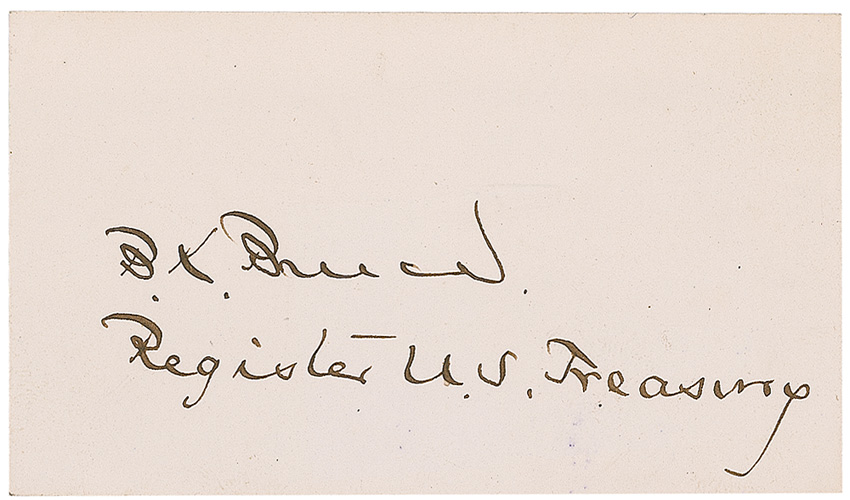 B.K. Bruce.
Register U.S. Treasury